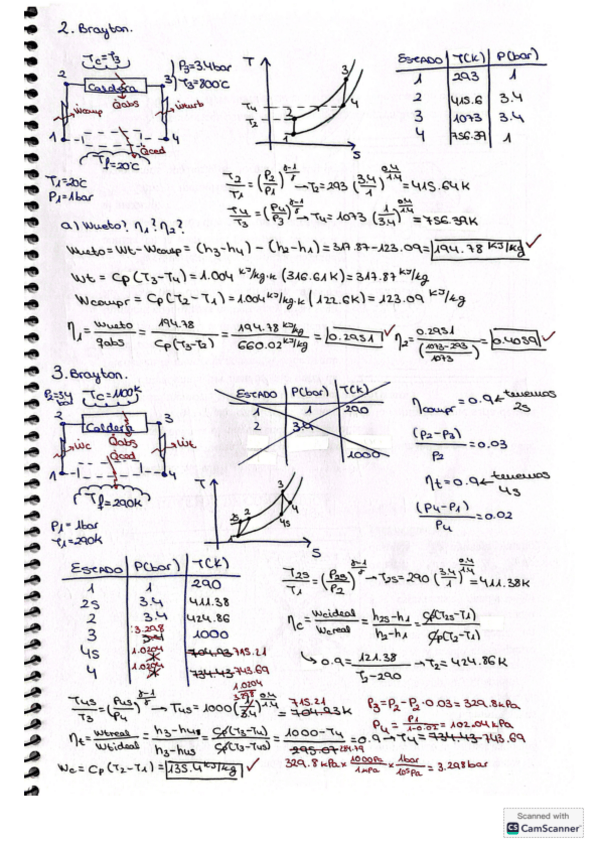 2. Brayton.
Tc = T3
P3 = 3.4 bar
T3 = 800°C
2
Caldera
3
Qabs
Ẇcomp
Ẇturb
1
4
Qced
Tf = 20°C
T1 = 20°C
P1 = 1 bar
T
T4
T2
2
3
4
1
S
ESTADO | T(K) | P(bar)
1 | 293 | 1
2 | 415.6 | 3.4
3 | 1073 | 3.4
4 | 756.39 | 1
T2/T1 = (P2/P1)^(γ-1/γ) → T2 = 293 (3.4/1)^(0.4/1.4) = 415.64 K
T4/T3 = (P4/P3)^(γ-1/γ) → T4 = 1073 (1/3.4)^(0.4/1.4) = 756.39 K
a) Wneto? η1? η2?
Wneto = Wt - Wcomp = (h3-h4) - (h2-h1) = 317.87 - 123.09 = 194.78 KJ/kg ✓
Wt = Cp (T3-T4) = 1.004 KJ/kg·K (316.61 K) = 317.87 KJ/kg
Wcompr = Cp (T2-T1) = 1.004 KJ/kg·K (122.6K) = 123.09 KJ/kg
η1 = Wneto/qabs = 194.78/Cp(T3-T2) = 194.78 KJ/kg / 660.02 KJ/kg = 0.2951 ✓ η2 = 0.2951/((1073-293)/1073) = 0.4059 ✓
3. Brayton.
P2 = 3.4 bar
Tc = 1100K
2
Caldera
3
Qabs
Qced
Ẇc
Ẇt
1
4
Tf = 290K
P1 = 1 bar
T1 = 290K
ESTADO | P(bar) | T(K)
1 | 1 | 290
2 | 3.4
1000
ηcompr = 0.9 ← tenemos 2s
(P2-P3)/P2 = 0.03
ηt = 0.9 ← tenemos 4s
(P4-P1)/P4 = 0.02
T
2s
2
3
4
4s
1
S
ESTADO | P(bar) | T(K)
1 | 1 | 290
2s | 3.4 | 411.38
2 | 3.4 | 424.86
3 | 3.298 | 1000
4s | 1.0204 | 704.93 715.21
4 | 1.0204 | 734.43 743.69
T2s/T1 = (P2s/P2)^(γ-1/γ) → T2s = 290 (3.4/1)^(0.4/1.4) = 411.38K
ηc = Wcideal/Wcreal = h2s-h1/h2-h1 = Cp(T2s-T1)/Cp(T2-T1)
↳ 0.9 = 121.38/T2-290 → T2 = 424.86 K
T4s/T3 = (P4s/P4)^(γ-1/γ) → T4s = 1000 (1/3.4)^(0.4/1.4) 1.0204/3.298 = 704.93 K 715.21
P3 = P2 - P2 · 0.03 = 329.8 kPa
P4 = P1/1-0.02 = 102.04 kPa
ηt = Wtreal/Wtideal = h3-h4/h3-h4s = Cp(T3-T4)/Cp(T3-T4s) = 1000-T4/295.07 284.79 = 0.9 → T4 = 734.43 743.69
Wc = Cp (T2-T1) = 135.4 KJ/kg ✓
329.8 kPa × 1000Pa/1kPa × 1bar/10⁵Pa = 3.298 bar
Scanned with
CS CamScanner